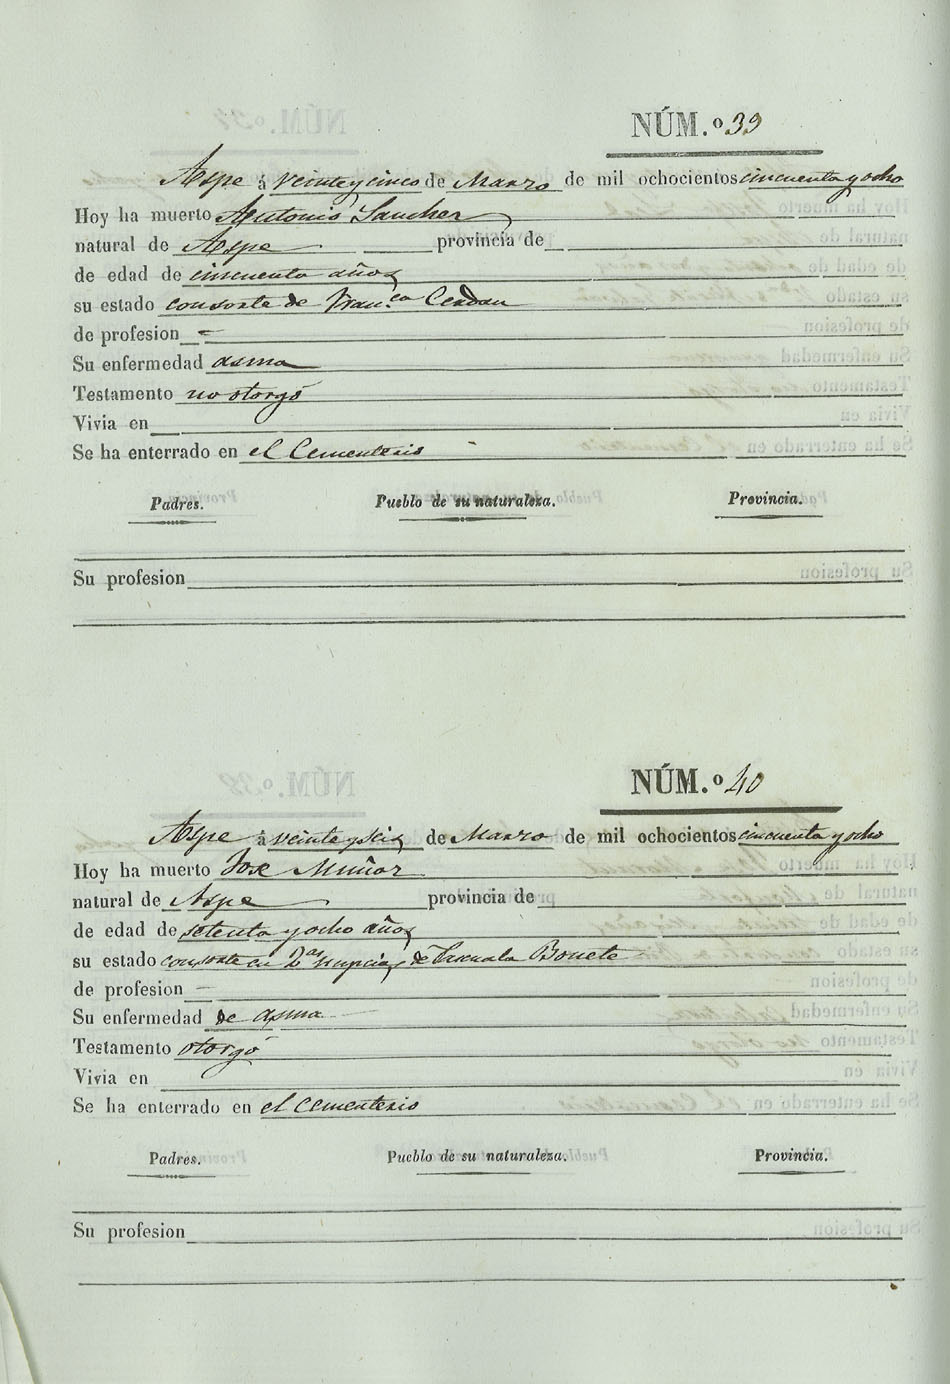 NÚM.º 39
Aspe á veinte y cinco de Marzo de mil ochocientos cincuenta y ocho
Hoy ha muerto Antonio Sanchez
natural de Aspe provincia de
de edad de cincuenta años
su estado consorte de Fran.ca Cerdan
de profesion
Su enfermedad asma
Testamento no otorgó
Vivia en
Se ha enterrado en el Cementerio
Padres. Pueblo de su naturaleza. Provincia.
Su profesion
NÚM.º 40
Aspe á veinte y seis de Marzo de mil ochocientos cincuenta y ocho
Hoy ha muerto Jose Muñoz
natural de Aspe provincia de
de edad de setenta y ocho años
su estado consorte en 2as nupcias de Pascuala Bonete
de profesion
Su enfermedad de asma
Testamento otorgó
Vivia en
Se ha enterrado en el Cementerio
Padres. Pueblo de su naturaleza. Provincia.
Su profesion